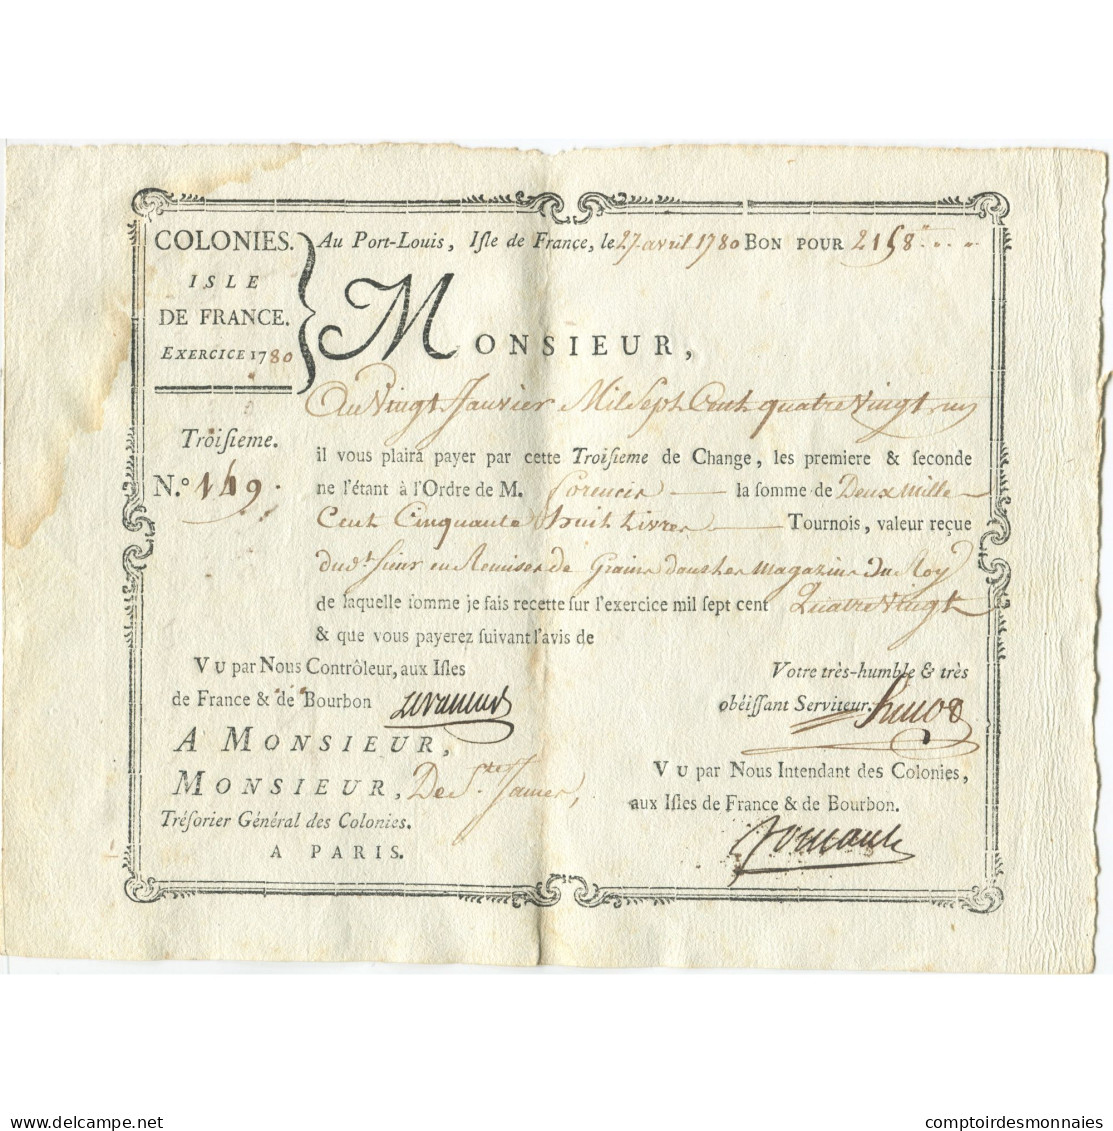 COLONIES.
ISLE
DE FRANCE.
EXERCICE 1780
Au Port-Louis, Isle de France, le 27 avril 1780 BON POUR 2158"
MONSIEUR,
Au Vingt Janvier Mil Sept Cent quatre Vingt un
Troisieme.
N.º 149.
il vous plaira payer par cette Troisieme de Change, les premiere & seconde
ne l'étant à l'Ordre de M. la somme de Deux Mille
Cent Cinquante huit Livres Tournois, valeur reçue
dud.t Sieur en Remises de Grains dans les Magazins du Roy
de laquelle somme je fais recette sur l'exercice mil sept cent Quatre Vingt
& que vous payerez suivant l'avis de
VU par Nous Contrôleur, aux Isles
de France & de Bourbon
Votre très-humble & très
obéissant Serviteur.
A MONSIEUR,
MONSIEUR, De S.te James,
Trésorier Général des Colonies.
A PARIS.
VU par Nous Intendant des Colonies,
aux Isles de France & de Bourbon.
comptoirdesmonnaies